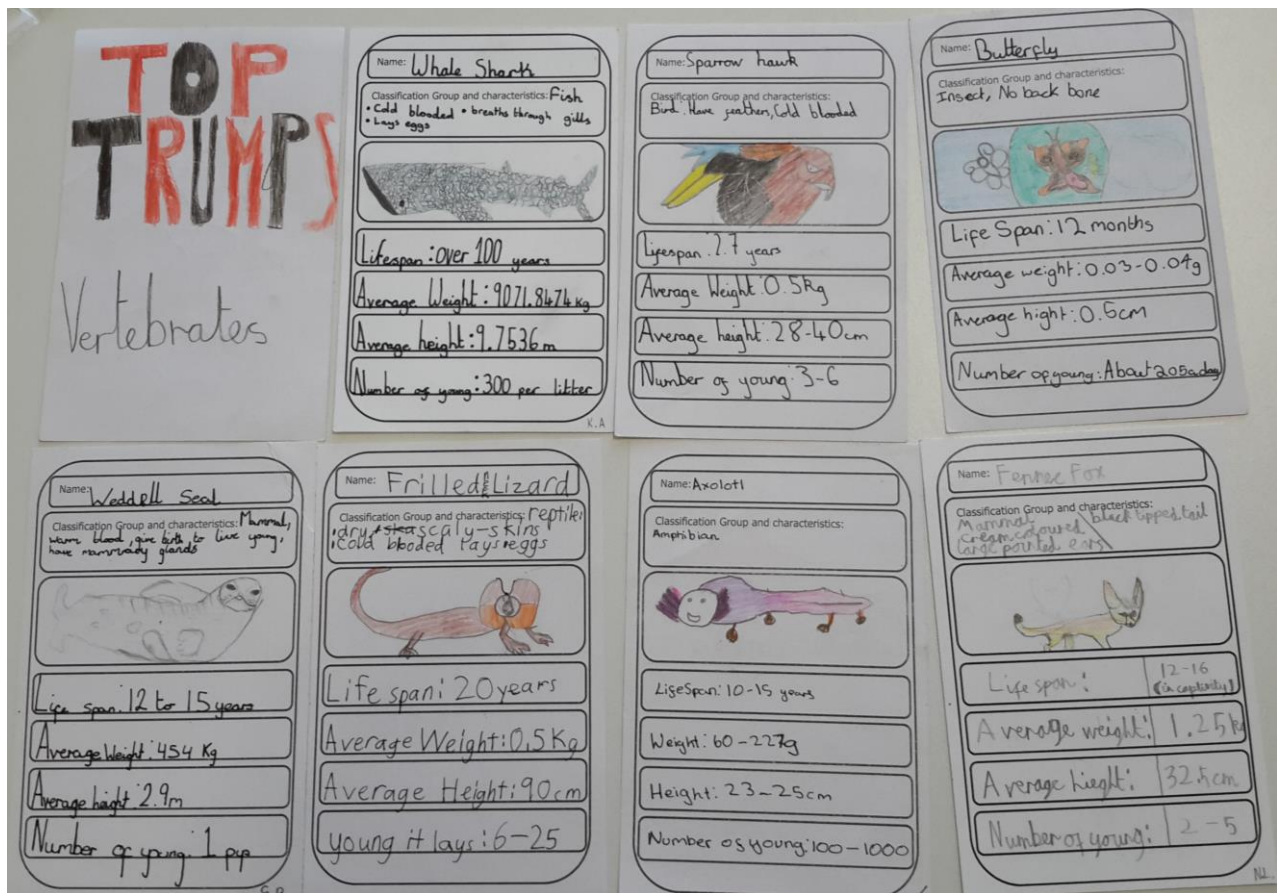 TOP
TRUMPS
Vertebrates
Name: Whale Shark
Classification Group and characteristics: Fish
• Cold blooded • breaths through gills
• Lays eggs
Lifespan: over 100 years
Average Weight: 9071.8474 kg
Average height: 9.7536 m
Number of young: 300 per litter
K.A
Name: Sparrow hawk
Classification Group and characteristics:
Bird. Have feathers, Cold blooded
Lifespan: 2.7 years
Average Weight: 0.5kg
Average height: 28-40cm
Number of young: 3-6
Name: Butterfly
Classification Group and characteristics:
Insect, No back bone
Life Span: 12 months
Average weight: 0.03-0.04g
Average hight: 0.5cm
Number of young: About 205 a day
Name: Weddell Seal
Classification Group and characteristics: Mammal,
warm blood, give birth to live young,
have mammary glands
Life span: 12 to 15 years
Average Weight: 454 Kg
Average height: 2.9m
Number of young: 1 pup
Name: Frilled Lizard
Classification Group and characteristics: reptile:
dry scaly-skins
cold blooded lays eggs
Life span: 20 years
Average Weight: 0.5 Kg
Average Height: 90 cm
young it lays: 6-25
Name: Axolotl
Classification Group and characteristics:
Amphibian
LifeSpan: 10-15 years
Weight: 60-227g
Height: 23-25cm
Number of young: 100-1000
Name: Fennec Fox
Classification Group and characteristics:
Mammal black tipped tail
cream coloured
large pointed ears
Life span: 12-16
(in captivity)
Average weight: 1.25k
Average hieght: 32.5cm
Number of young: 2-5
N.L.